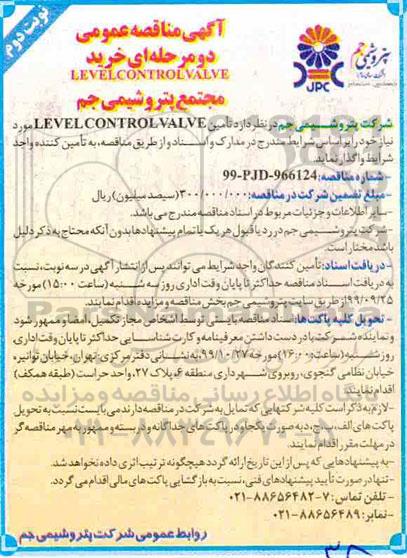 نوبت دوم
آگهی مناقصه عمومی
دو مرحله‌ای خرید
LEVEL CONTROL VALVE
مجتمع پتروشیمی جم
پتروشیمی جم
JPC
شرکت پتروشیمی جم در نظر دارد تأمین LEVEL CONTROL VALVE مورد
نیاز خود را بر اساس شرایط مندرج در مدارک و اسناد و از طریق مناقصه، به تأمین کننده واجد
شرایط واگذار نماید.
-شماره مناقصه: 99-PJD-966124
-مبلغ تضمین شرکت در مناقصه: ۳۰۰/۰۰۰/۰۰۰ (سیصد میلیون) ریال
-سایر اطلاعات و جزئیات مربوط در اسناد مناقصه مندرج می باشد.
-شرکت پتروشیمی جم در رد یا قبول هر یک یا تمام پیشنهادها بدون آنکه محتاج به ذکر دلیل
باشد مختار است.
-دریافت اسناد: تأمین کنندگان واجد شرایط می توانند پس از انتشار آگهی در سه نوبت، نسبت
به دریافت اسناد مناقصه حداکثر تا پایان وقت اداری روز سه شنبه (ساعت ۱۵:۰۰) مورخه
۹۹/۰۹/۲۵ از طریق سایت پتروشیمی جم بخش مناقصه و مزایده اقدام نمایند.
-تحویل کلیه پاکت‌ها: اسناد مناقصه بایستی توسط اشخاص مجاز تکمیل، امضا و ممهور شود
و نماینده شرکت با در دست داشتن معرفینامه و کارت شناسایی حداکثر تا پایان وقت اداری
روز شنبه (ساعت ۱۶:۰۰) مورخه ۹۹/۱۰/۲۷، به نشانی دفتر مرکزی: تهران، خیابان توانیر،
خیابان نظامی گنجوی، روبروی شهرداری منطقه ۶، پلاک ۲۷، واحد حراست (طبقه همکف)
اقدام نمایند.
-لازم به ذکر است کلیه شرکتهایی که تمایل به شرکت در مناقصه دارند می بایست نسبت به تحویل
پاکت‌های الف، ب، ج، به صورت یکجا و در پاکت های جداگانه و دربسته و ممهور به مهر مناقصه گر
در مهلت مقرر اقدام نمایند.
-به پیشنهادهایی که پس از این تاریخ ارائه گردد هیچگونه ترتیب اثری داده نخواهد شد.
-تنها در صورت تأیید پیشنهادهای فنی، نسبت به بازگشایی پاکت های مالی اقدام می گردد.
-تلفن تماس: ۷-۸۸۶۵۶۴۸۲-۰۲۱
-نمابر: ۸۸۶۵۶۴۸۹-۰۲۱
روابط عمومی شرکت پتروشیمی جم
پایگاه اطلاع رسانی مناقصه و مزایده